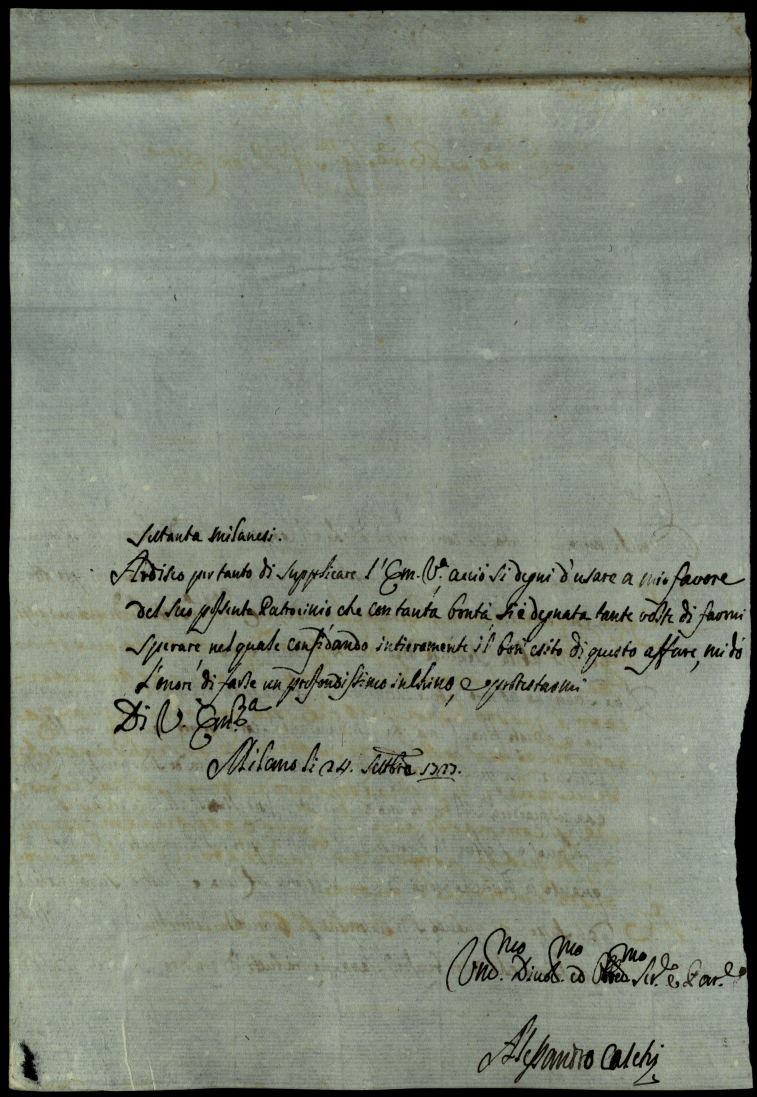 Settanta milanesi.
Ardisco per tanto di supplicare l'Em. V.ª acciò si degni d'usare a mio favore
del suo possente Patrocinio che con tanta bontà si è degnata tante volte di farmi
sperare nel quale confidando intieramente il bon esito di questo affare, mi dò
l'onore di farle un profondissimo inchino, e protestarmi
Di V. Em.ª
Milano li 24. Settbre
Um.mo Divot.mo ed Obbed.mo Ser.e e
Alessandro Calchi